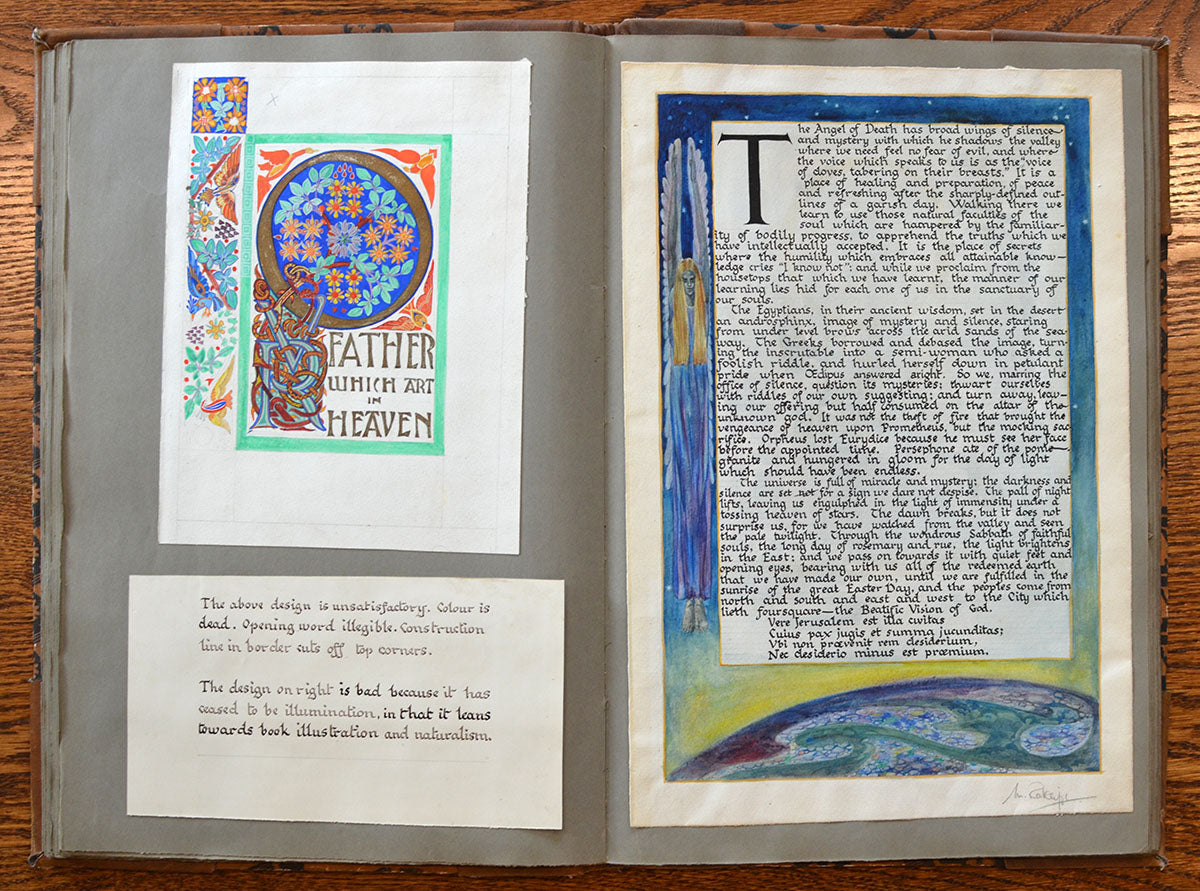 FATHER
WHICH ART
IN
HEAVEN
The above design is unsatisfactory. Colour is
dead. Opening word illegible. Construction
line in border cuts off top corners.
The design on right is bad because it has
ceased to be illumination, in that it leans
towards book illustration and naturalism.
The Angel of Death has broad wings of silence
and mystery with which he shadows the valley
where we need feel no fear of evil, and where
the voice which speaks to us is as the "voice
of doves, tabering on their breasts." It is a
place of healing and preparation, of peace
and refreshing after the sharply-defined out-
lines of a garish day. Walking there we
learn to use those natural faculties of the
soul which are hampered by the familiar-
ity of bodily progress, to apprehend the truths which we
have intellectually accepted. It is the place of secrets
where the humility which embraces all attainable know-
ledge cries "I know not"; and while we proclaim from the
housetops that which we have learnt, the manner of our
learning lies hid for each one of us in the sanctuary of
our souls.
The Egyptians, in their ancient wisdom, set in the desert
an androsphinx, image of mystery and silence, staring
from under level brows across the arid sands of the sea-
way. The Greeks borrowed and debased the image, turn-
ing the inscrutable into a semi-woman who asked a
foolish riddle, and hurled herself down in petulant
pride when Œdipus answered aright. So we, marring the
office of silence, question its mysteries; thwart ourselves
with riddles of our own suggesting; and turn away, leav-
ing our offering but half consumed on the altar of the
unknown god. It was not the theft of fire that brought the
vengeance of heaven upon Prometheus, but the mocking sac
rifice. Orpheus lost Eurydice because he must see her face
before the appointed time. Persephone ate of the pome-
granite and hungered in gloom for the day of light
which should have been endless.
The universe is full of miracle and mystery; the darkness and
silence are set not for a sign we dare not despise. The pall of night
lifts, leaving us engulphed in the light of immensity under a
tossing heaven of stars. The dawn breaks, but it does not
surprise us, for we have watched from the valley and seen
the pale twilight. Through the wondrous Sabbath of faithful
souls, the long day of rosemary and rue, the light brightens
in the East; and we pass on towards it with quiet feet and
opening eyes, bearing with us all of the redeemed earth
that we have made our own, until we are fulfilled in the
sunrise of the great Easter Day, and the peoples come from
north and south and east and west to the City which
lieth foursquare—the Beatific Vision of God.
Vere Jerusalem est illa civitas
Cuius pax jugis et summa jucunditas;
Vbi non prævenit rem desiderium,
Nec desiderio minus est præmium.